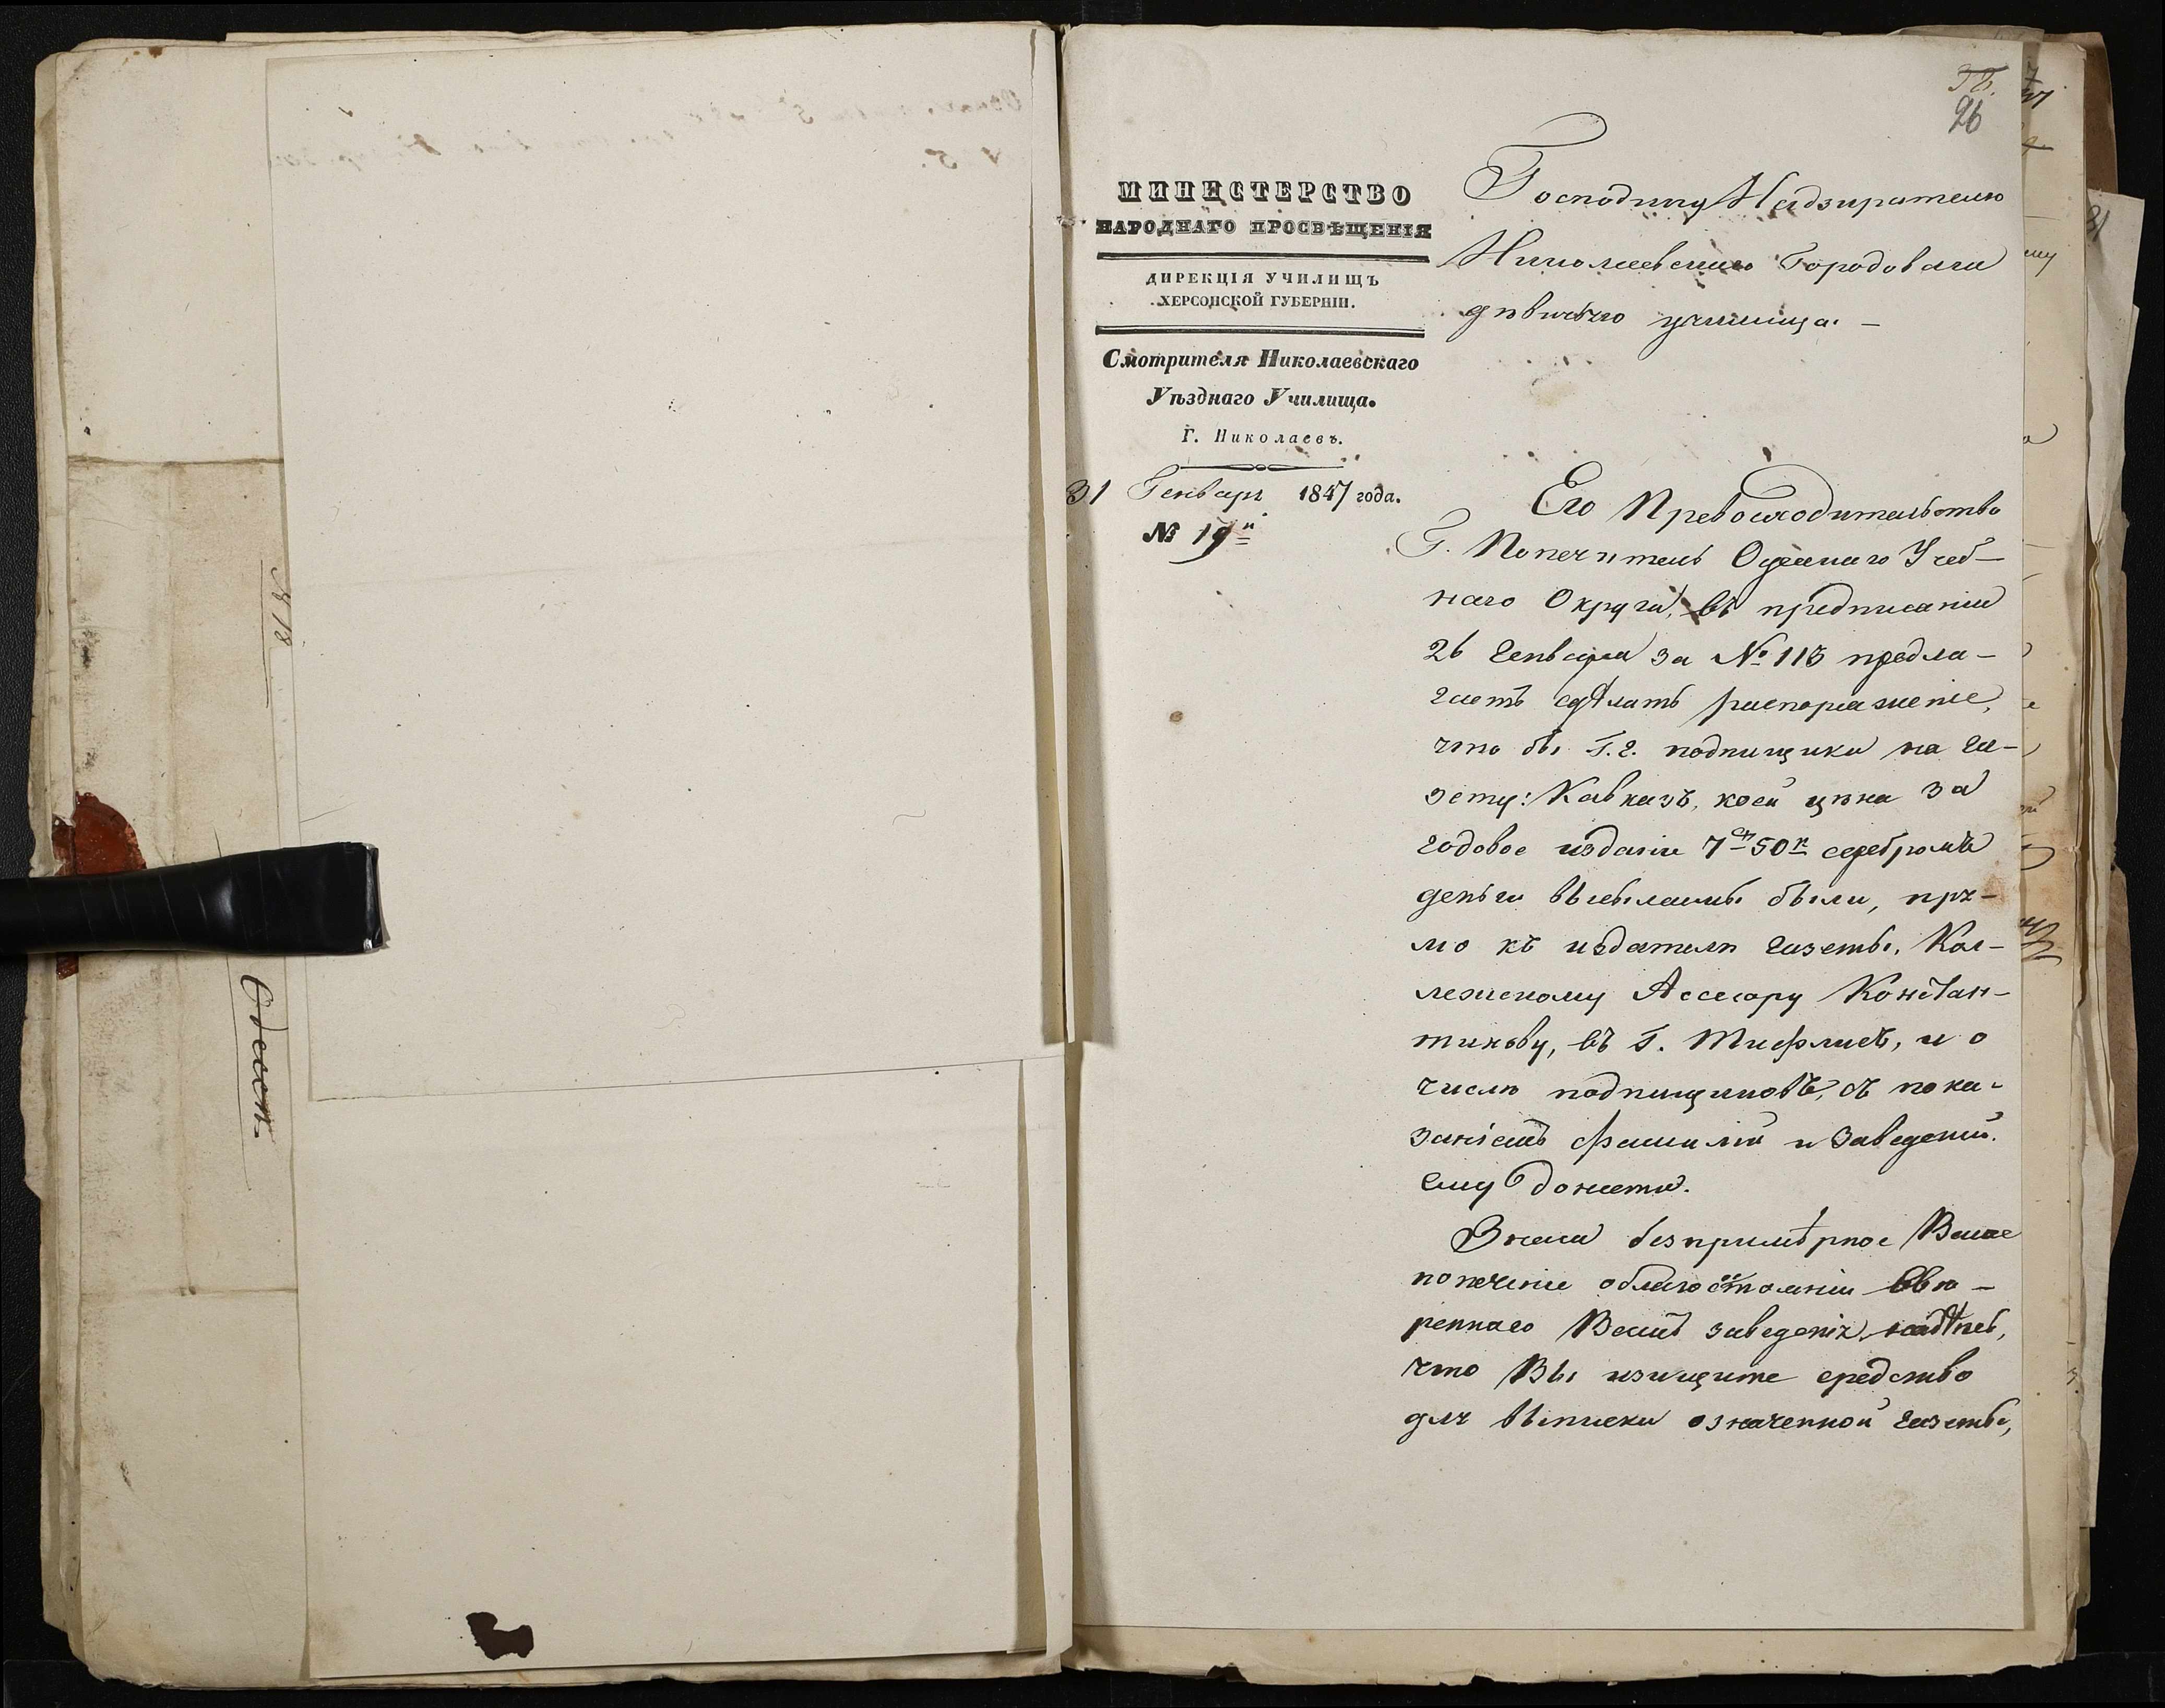 № 18
Одесса.
26
МИНИСТЕРСТВО
НАРОДНАГО ПРОСВѢЩЕНІЯ
ДИРЕКЦІЯ УЧИЛИЩЪ
ХЕРСОНСКОЙ ГУБЕРНІИ.
Смотрителя Николаевскаго
Уѣзднаго Училища.
Г. Николаевъ.
31 Генваря 1847 года.
№ 19й
Господину Надзирателю
Николаевскаго Городоваго
дѣвичьяго училища. —
Его Превосходительство
Г. Попечитель Одесскаго Учеб-
наго Округа, въ предписаніи
26 Генваря за № 113 предла-
гаетъ сдѣлать распоряженіе,
что бы Г.г. подпищики на га-
зету: Кавказъ, коей цѣна за
годовое изданіе 7 50к серебромъ
деньги высылаемы были, пря-
мо къ издателю газеты, Кол-
лежскому Ассесору Констан-
тинову, въ Г. Тифлисъ, и о
числѣ подпищиковъ, съ пока-
заніемъ фамилій и заведеній.
ему донести.
Зная безпримѣрное Ваше
попеченіе о благостояніи ввѣ-
реннаго Вамъ заведенія, надѣюсь,
что Вы изищите средство
для выписки означенной газеты,